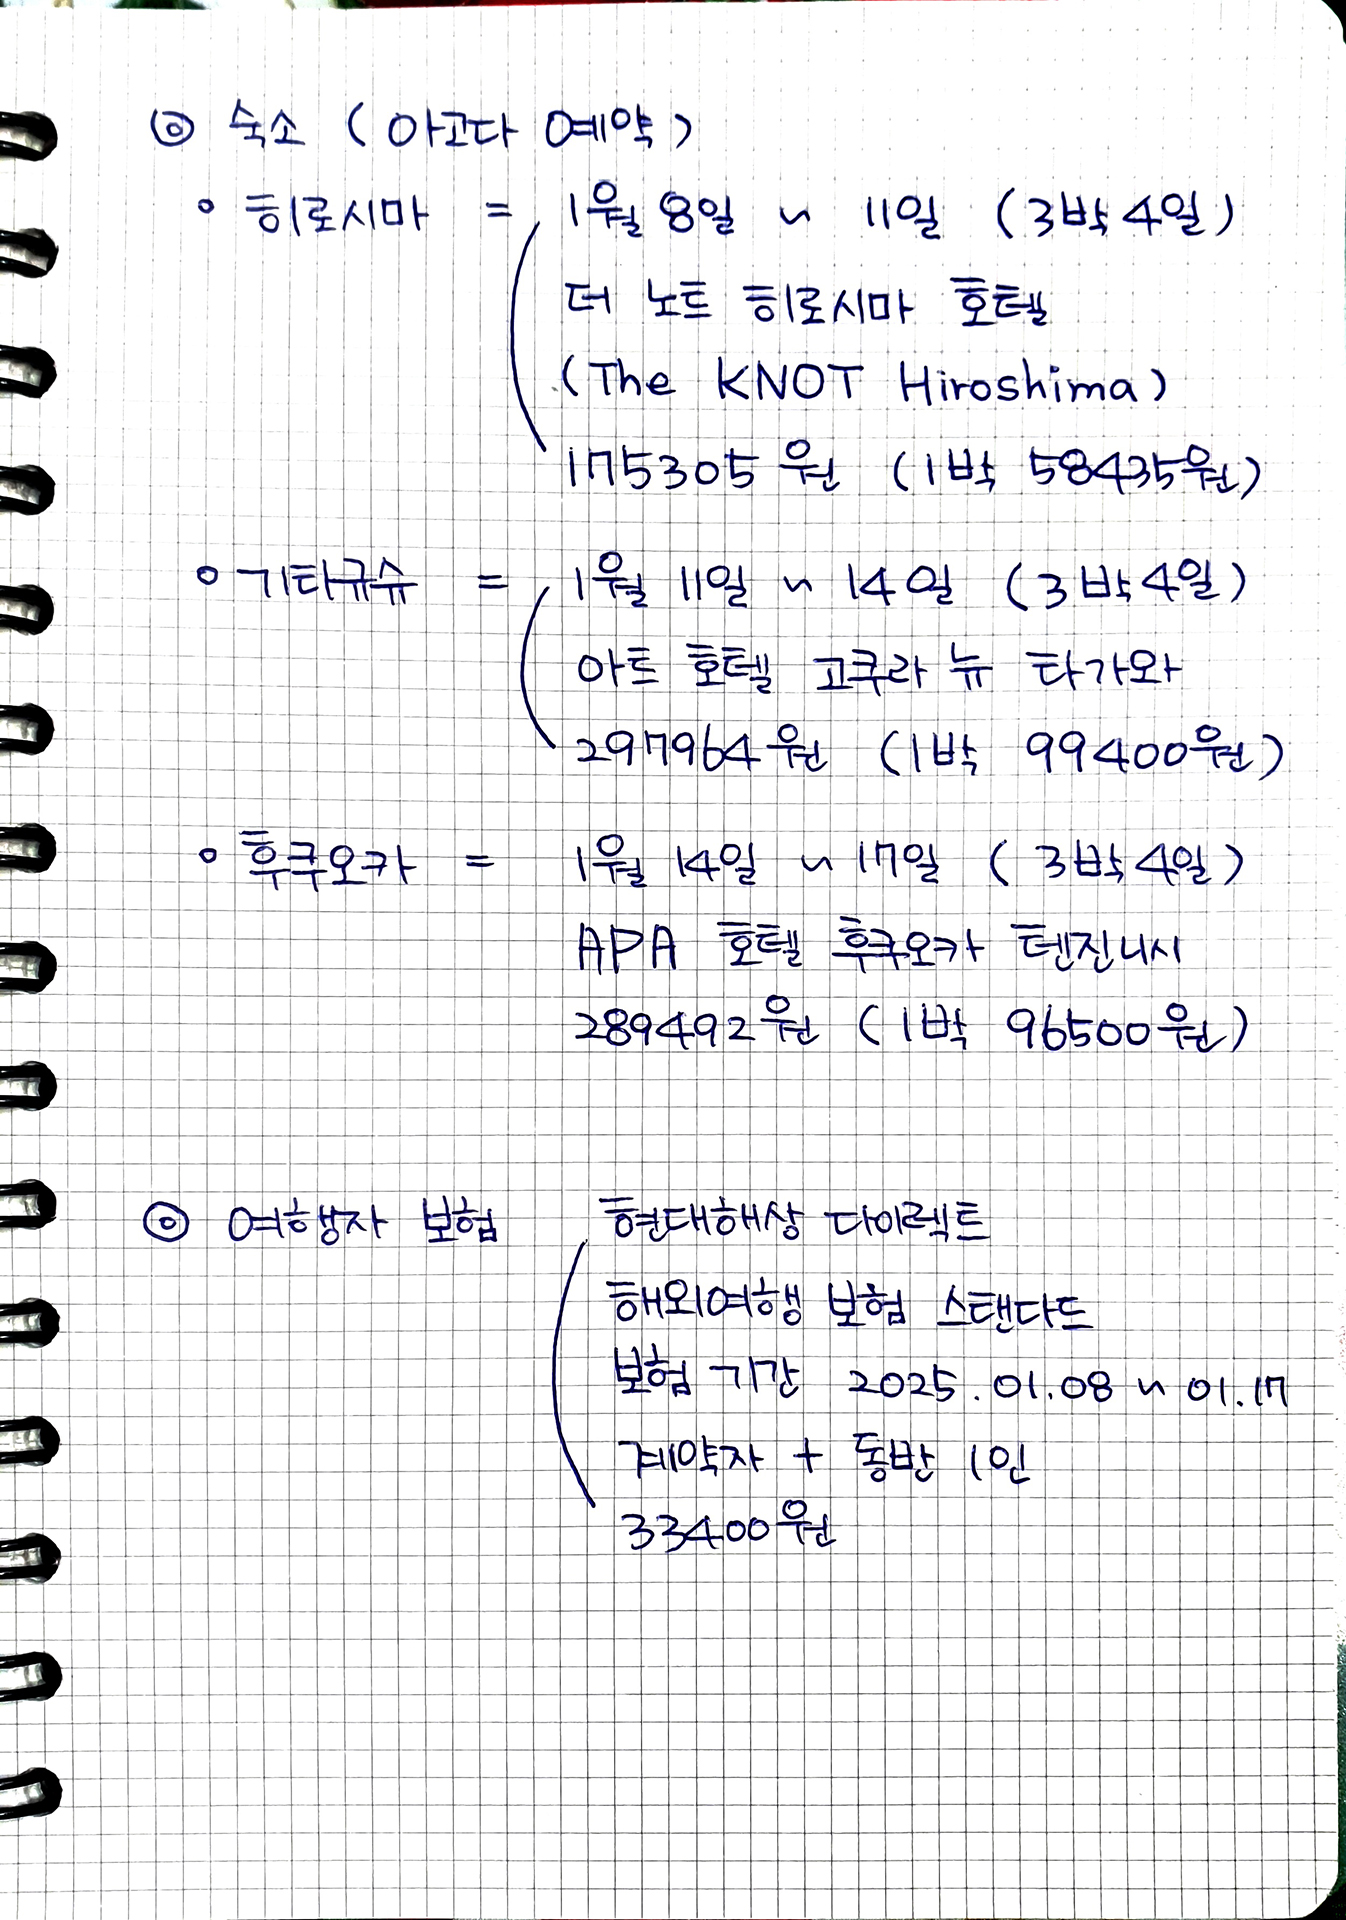 ◎ 숙소 (아고다 예약)
• 히로시마 = 1월 8일 ~ 11일 (3박 4일)
더 노트 히로시마 호텔
(The KNOT Hiroshima)
175305원 (1박 58435원)
• 기타큐슈 = 1월 11일 ~ 14일 (3박 4일)
아트 호텔 고쿠라 뉴 타가와
297964원 (1박 99400원)
• 후쿠오카 = 1월 14일 ~ 17일 (3박 4일)
APA 호텔 후쿠오카 텐진니시
289492원 (1박 96500원)
◎ 여행자 보험 현대해상 다이렉트
해외여행 보험 스탠다드
보험 기간 2025.01.08 ~ 01.17
계약자 + 동반 1인
33400원